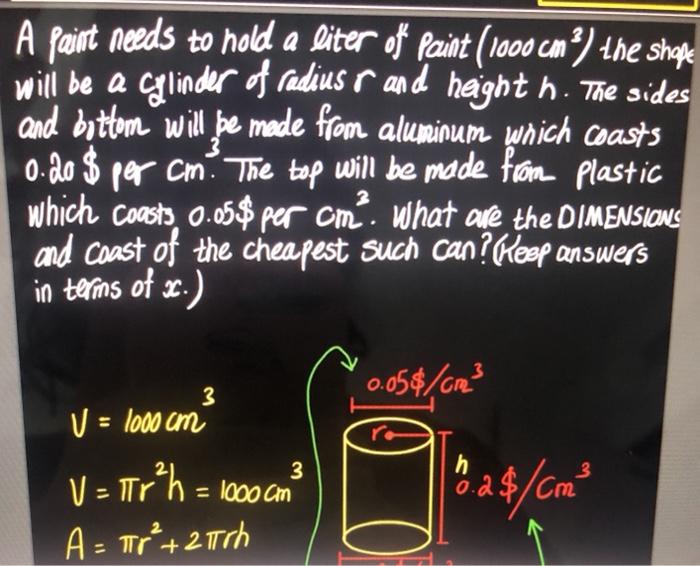 A Paint needs to hold a liter of Paint (1000 cm³) the shape
will be a cylinder of radius r and height h. The sides
and bottom will be made from aluminum which coasts
0.20 $ per cm³. The top will be made from Plastic
which coasts 0.05$ per cm². What are the DIMENSIONS
and coast of the cheapest such can? (Keep answers
in terms of x.)
0.05$/cm³
V = 1000 cm³
r
h
0.2$/cm³
V = πr²h = 1000 cm³
A = πr² + 2πrh